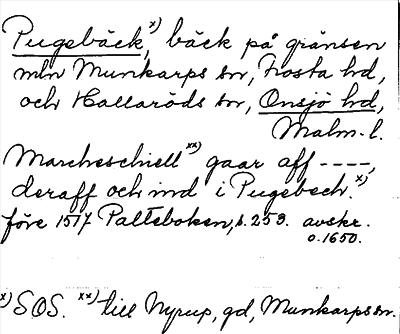 Pugebäck,ˣ⁾ bäck på gränsen
mln Munkarps sn, Frosta hd,
och Hallaröds sn, Onsjö hd,
Malm. l.
Marcheschiellˣˣ⁾ gaar aff ----,
deraff och ind i Pugebech.ˣ⁾
före 1577 Palteboken, s. 259. avskr.
o. 1650.
ˣ⁾ SOS. ˣˣ⁾ till Nyrup, gd, Munkarps sn.